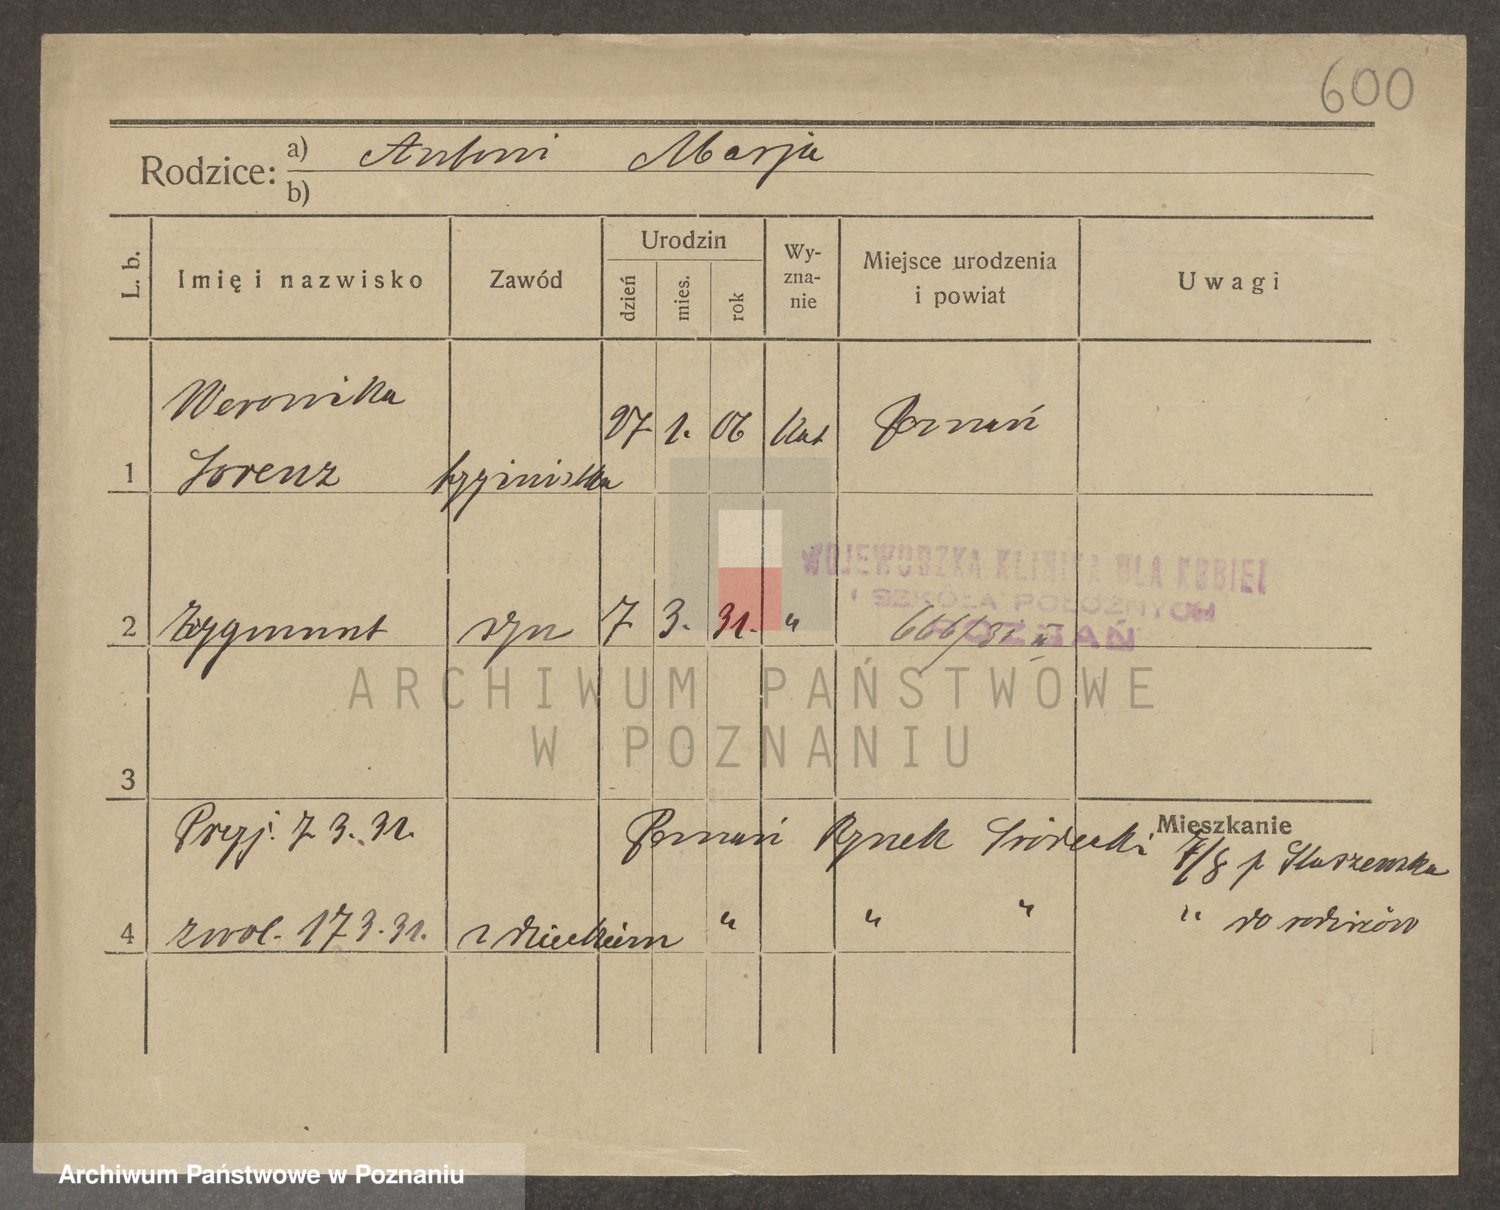 600
Rodzice: a) Antoni Marja
b)
L. b. Imię i nazwisko Zawód Urodzin dzień mies. rok Wy-zna-nie Miejsce urodzenia i powiat Uwagi
Weronika 27 1. 06 kat Poznań
1 Lorenz
WOJEWÓDZKA KLINIKA DLA KOBIET
I SZKOŁA POŁOŻNYCH
POZNAŃ
2 Zygmunt syn 7 3. 31. " 666/31
3
Mieszkanie
Przyj. 7 3. 31. Poznań Rynek Śródecki 7/8 p Staszewska
4 zwol. 17 3. 31. z dzieckiem " " " " do rodziców
ARCHIWUM PAŃSTWOWE
W POZNANIU
Archiwum Państwowe w Poznaniu